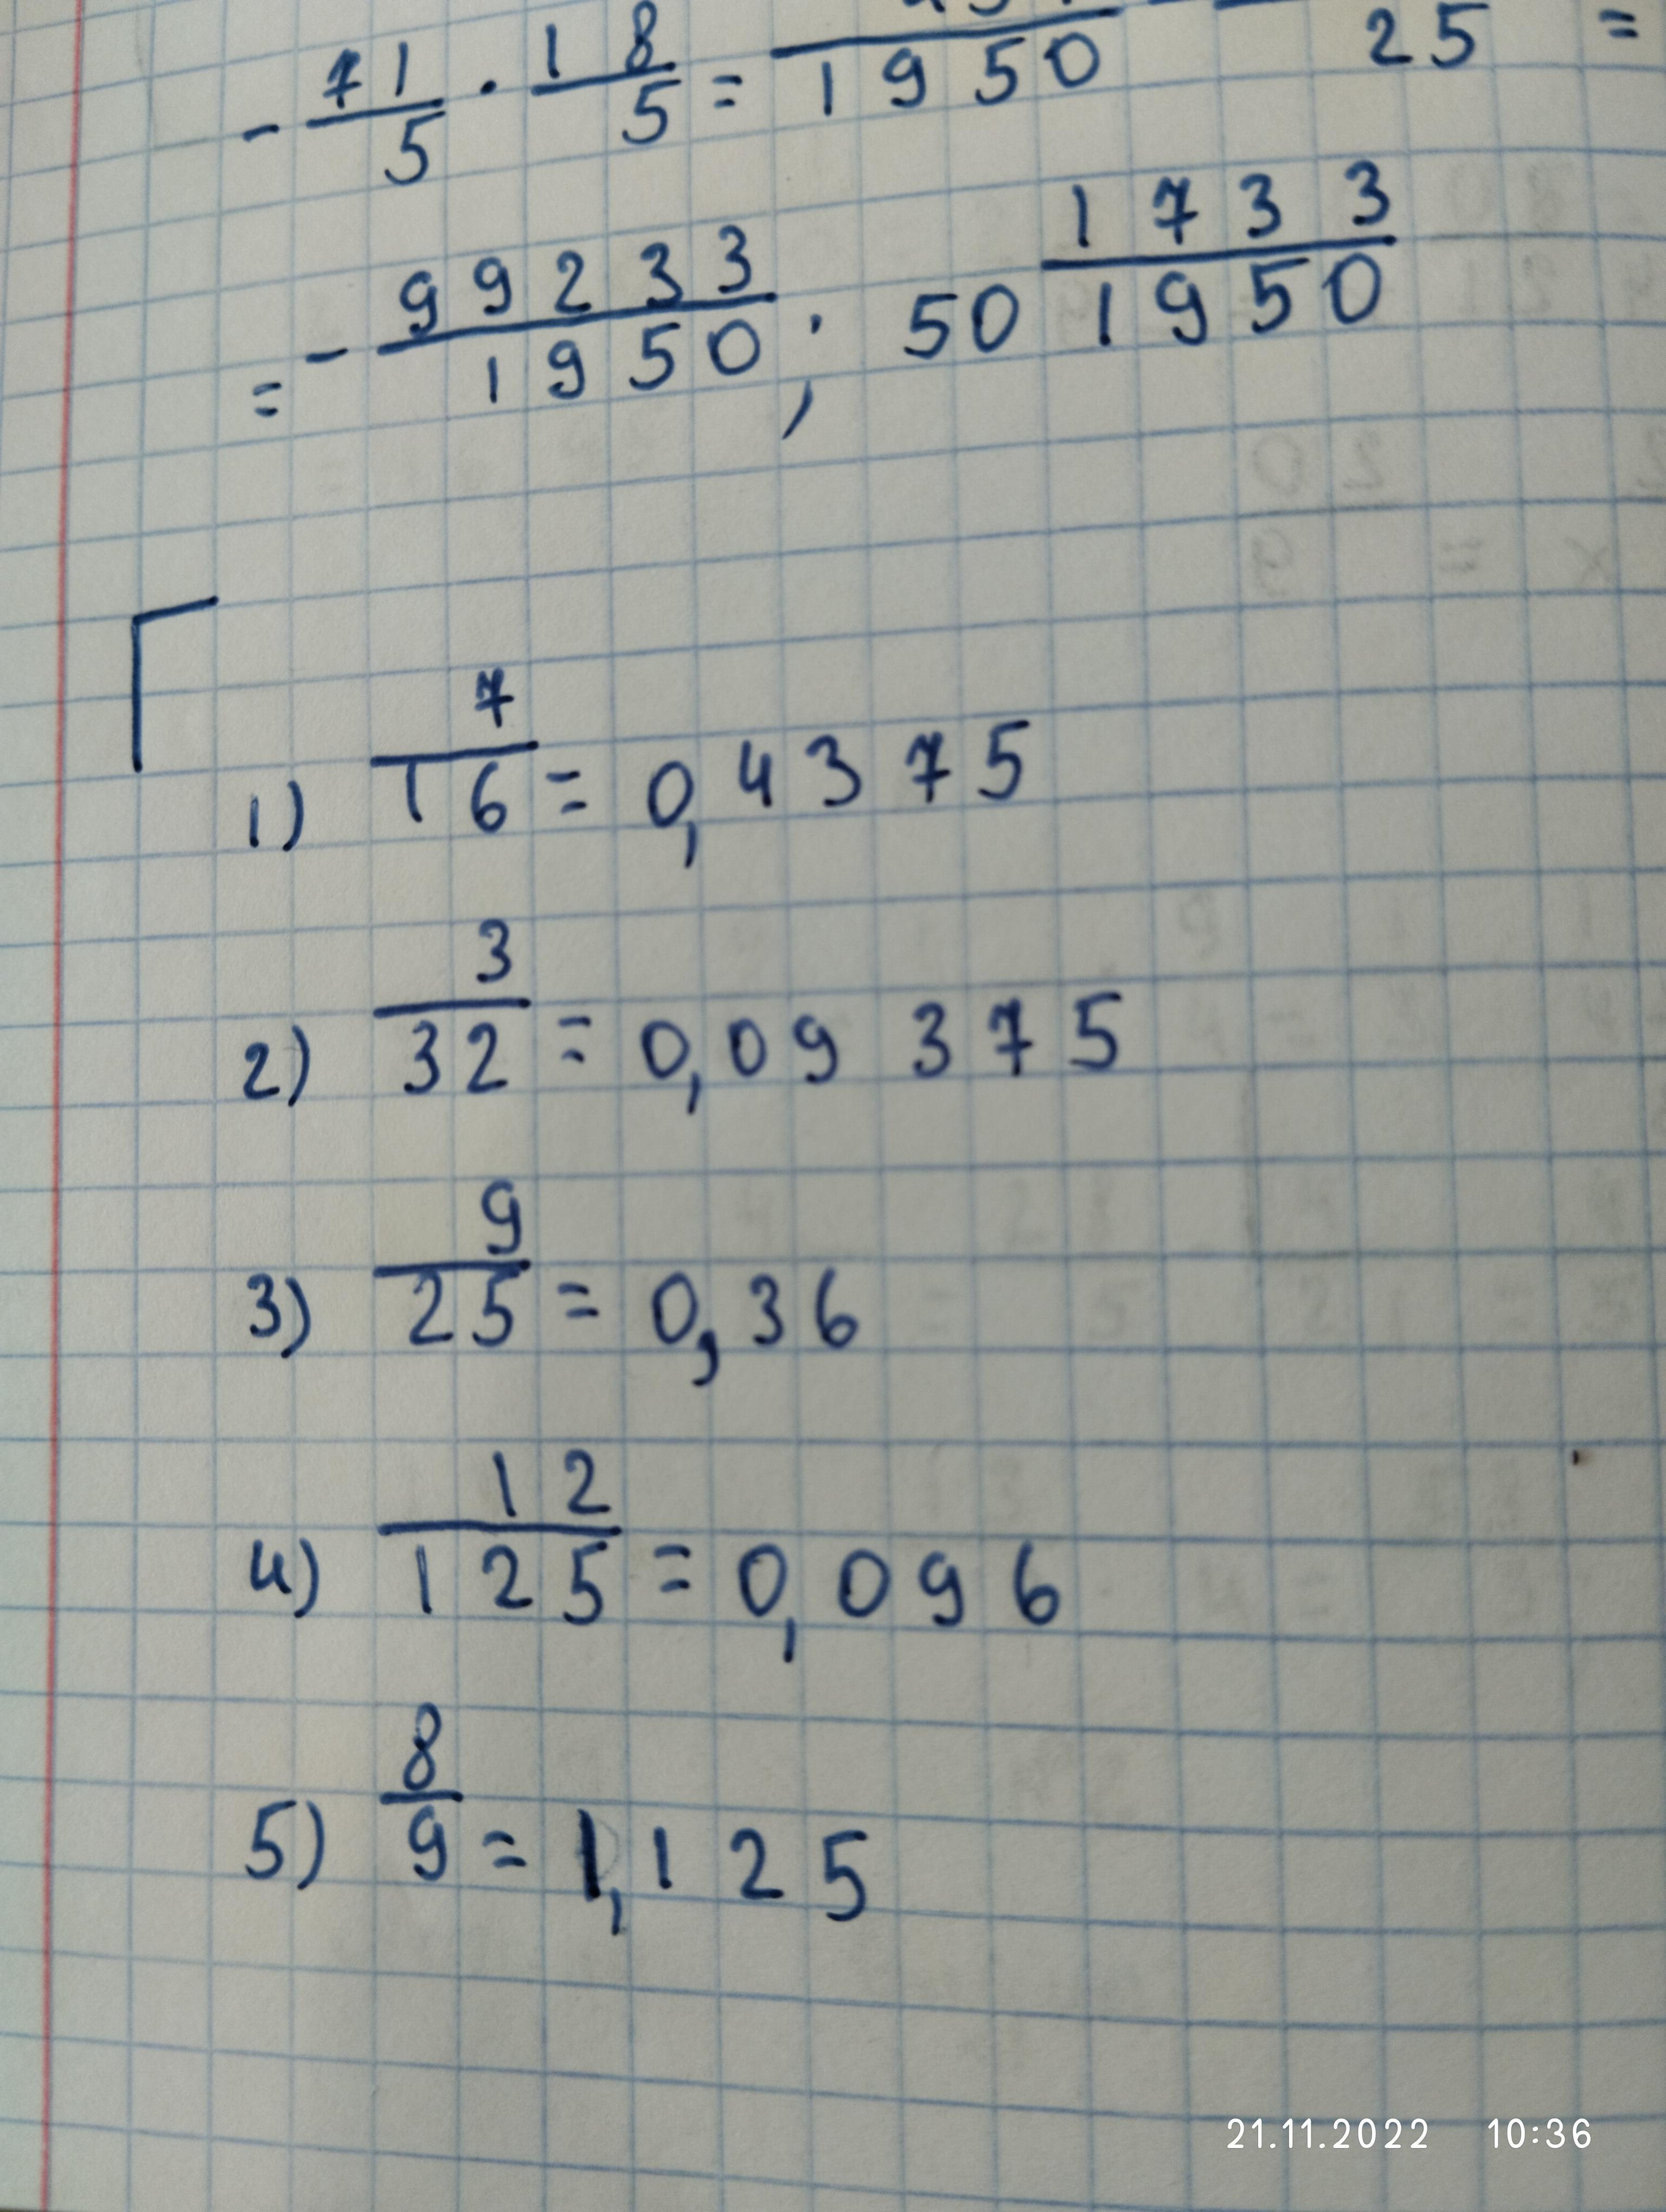 - 71/5 · 18/5 = /1950 25 =
= - 99233/1950 ; 50 1733/1950
1) 7/16 = 0,4375
2) 3/32 = 0,09375
3) 9/25 = 0,36
4) 12/125 = 0,096
5) 8/9 = 1,125
21.11.2022 10:36